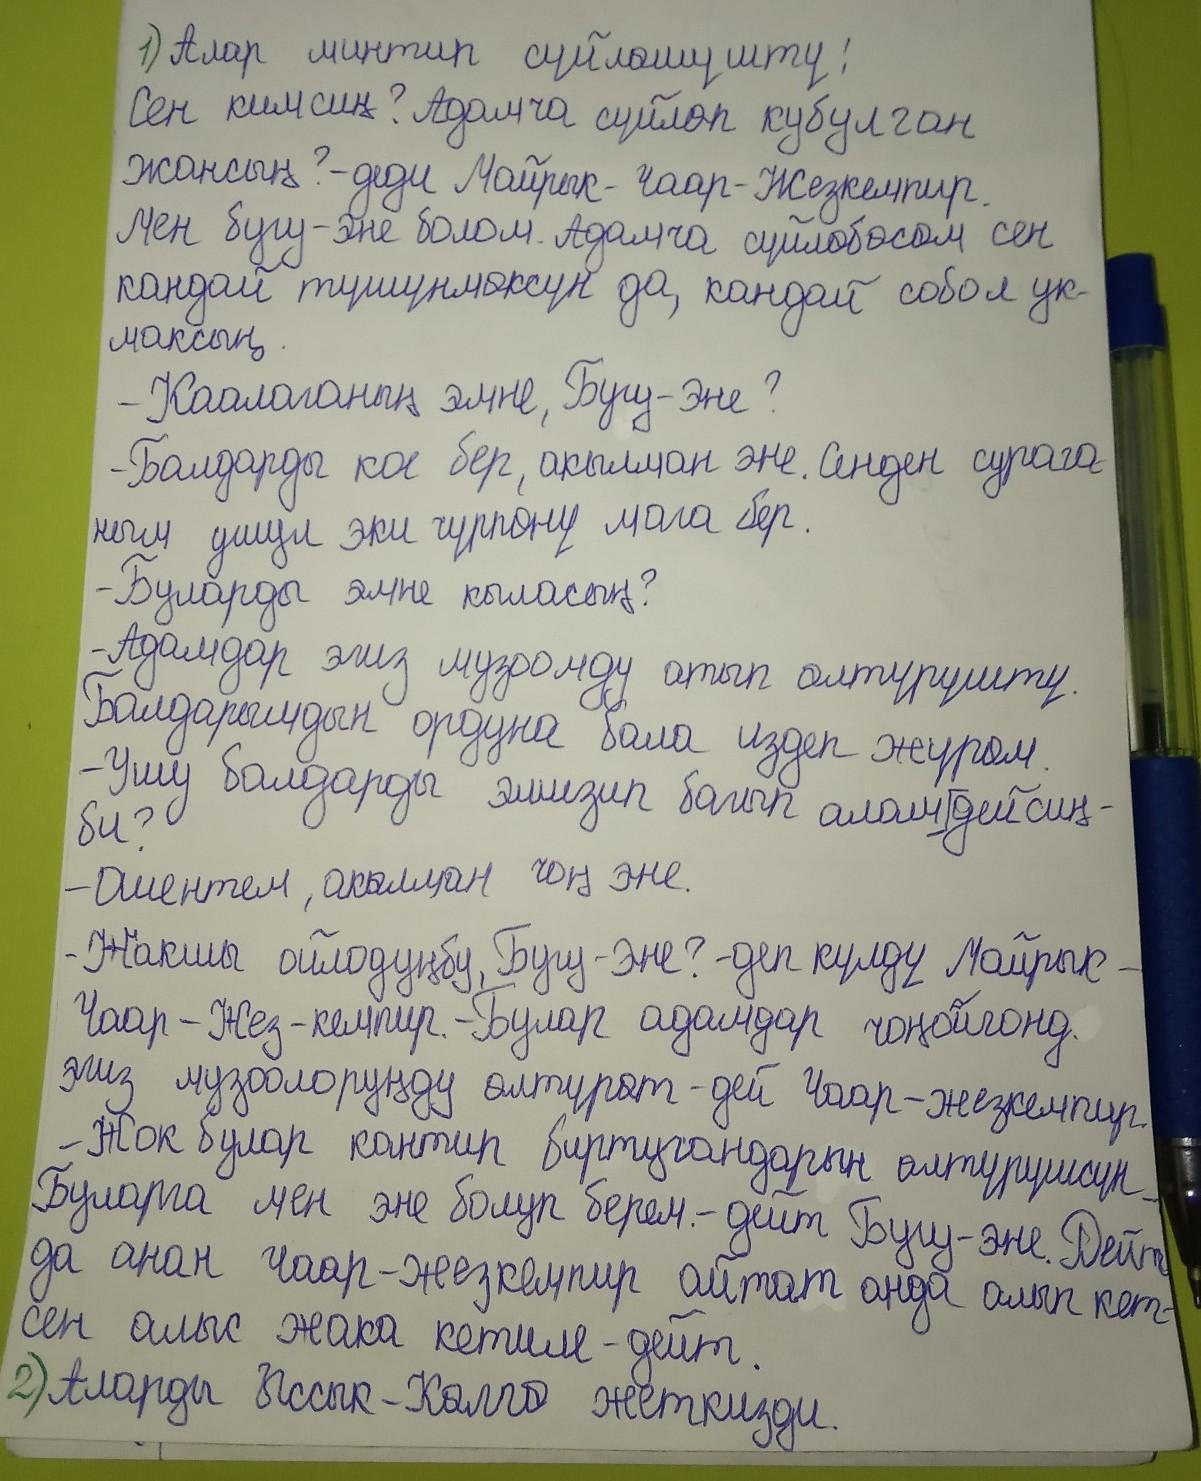 1) Алар минтип сүйлөшүштү!
Сен кимсиң? Адамча сүйлөп кубулган
жансың?-деди Майрык-Чаар-Жезкемпир.
Мен бугу-эне болом. Адамча сүйлөбөсөм сен
кандай түшүнмөксүн да, кандай собол ук-
максың.
-Каалаганың эмне, Бугу-Эне?
-Балдарды кое бер, акылман эне. Сенден сурага
ным ушул эки чүрпөнү мага бер.
-Буларды эмне кыласың?
-Адамдар эгиз музоомду атып өлтүрүштү.
Балдарымдын ордуна бала издеп жүрөм.
-Ушу балдарды эмизип багып алам дейсиң-
би?
-Ошентем, акылман чоң эне.
-Жакшы ойлодуңбу, Бугу-Эне?-деп күлдү Майрык-
Чаар-Жез-кемпир.-Булар адамдар чоңойгонд.
эгиз музоолоруңду өлтүрөт-дей Чаар-жезкемпир.
-Жок булар кантип биртугандарын өлтүрүшсүн-
Буларга мен эне болуп берем.-дейт Бугу-эне. Дейт
да анан Чаар-жезкемпир айтат анда алып кет-
сен алыс жака кетиле-дейт.
2) Аларды Ыссык-Көлгө жеткизди.